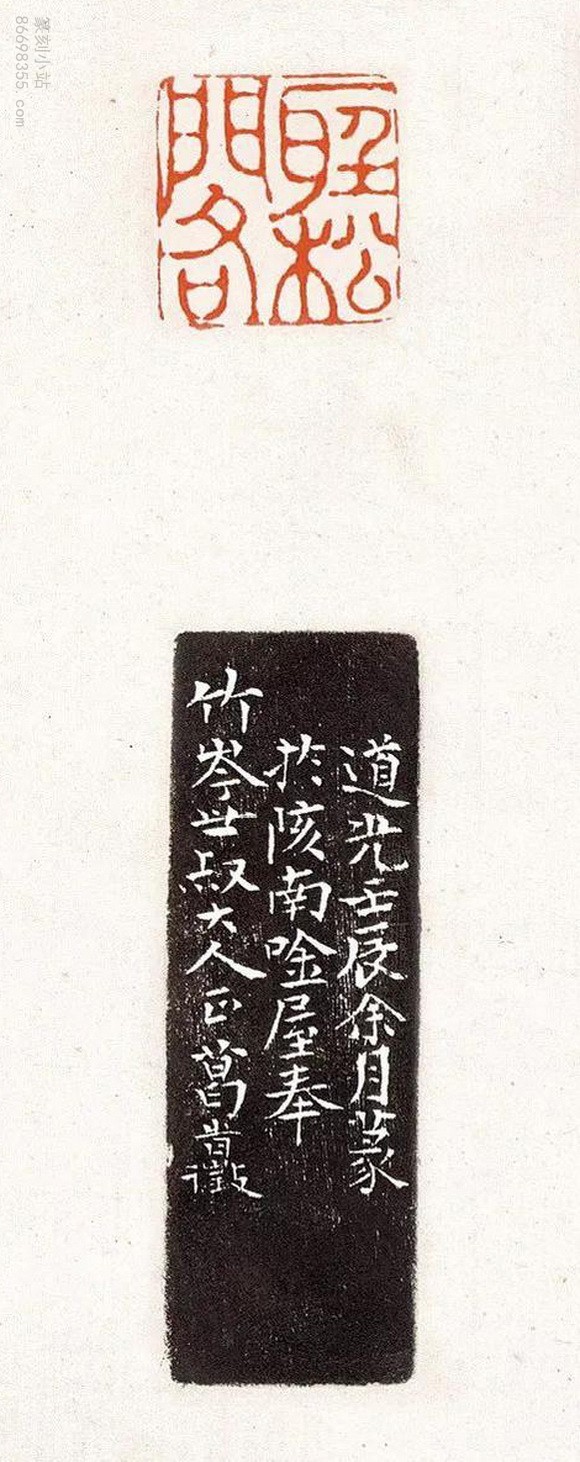 篆刻小站
86698355.com
聽松
閣
道光壬辰余月篆
於陔南唫屋奉
竹岑世叔大人正葛